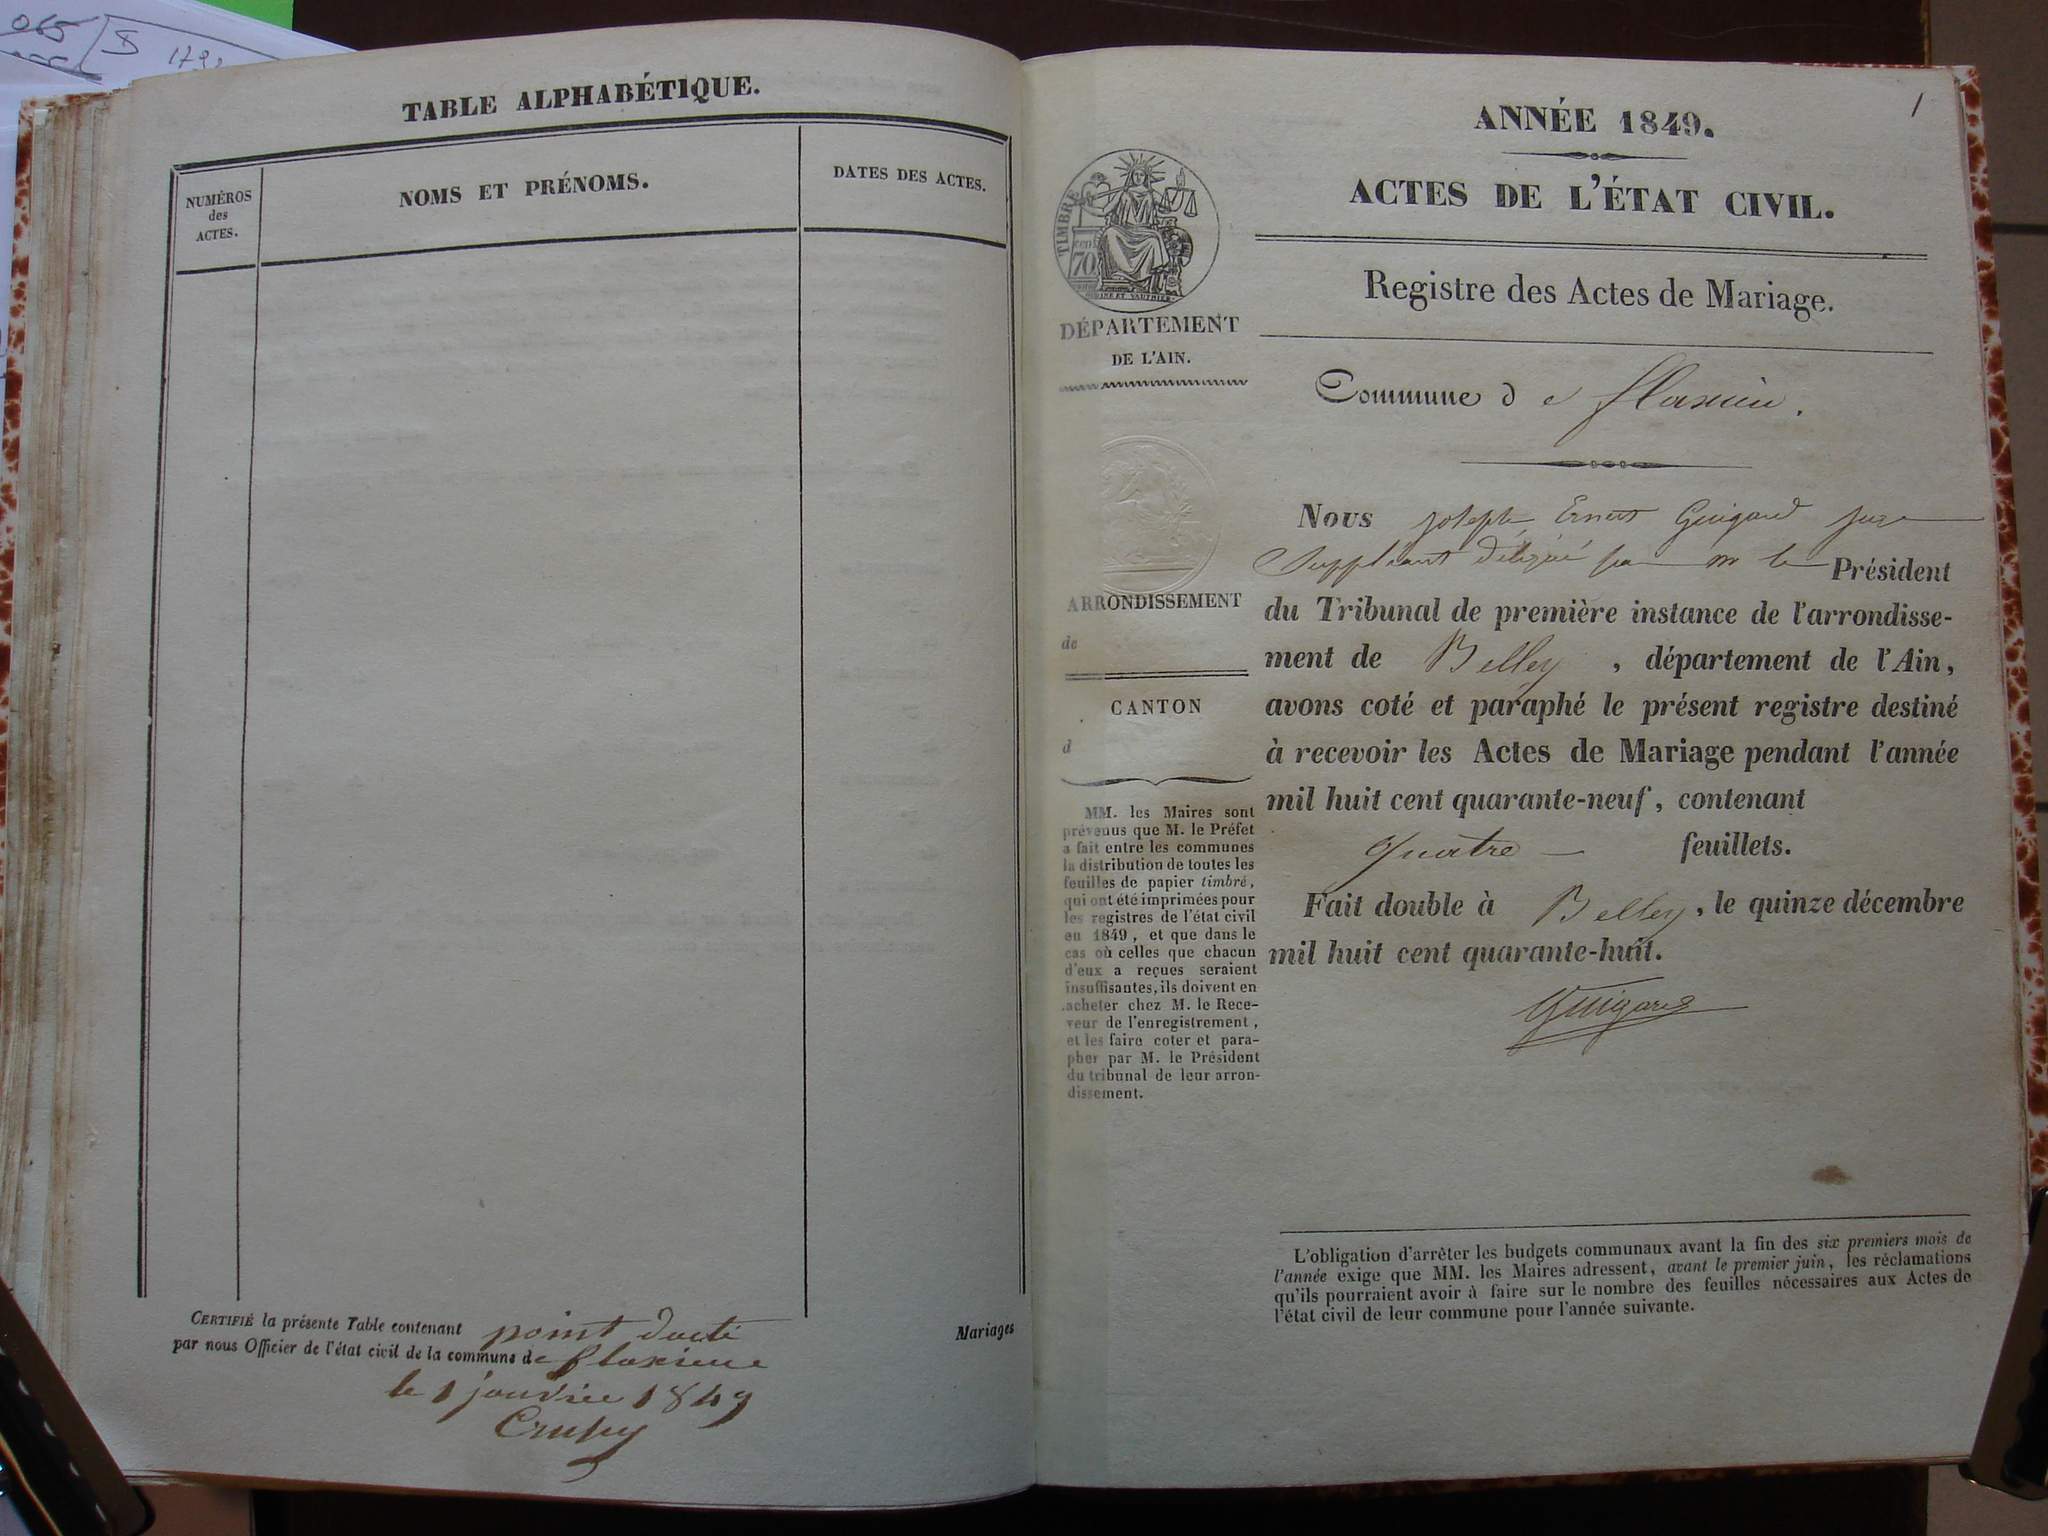 065
1792
TABLE ALPHABÉTIQUE.
NUMÉROS
des
ACTES.
NOMS ET PRÉNOMS.
DATES DES ACTES.
CERTIFIÉ la présente Table contenant point d'acte Mariages
par nous Officier de l'état civil de la commune de flaxieu
le 1 janvier 1849
1
ANNÉE 1849.
ACTES DE L'ÉTAT CIVIL.
Registre des Actes de Mariage.
TIMBRE
cent
70
DÉPARTEMENT
DE L'AIN.
ARRONDISSEMENT
de
CANTON
d
MM. les Maires sont
prévenus que M. le Préfet
a fait entre les communes
la distribution de toutes les
feuilles de papier timbré,
qui ont été imprimées pour
les registres de l'état civil
en 1849, et que dans le
cas où celles que chacun
d'eux a reçues seraient
insuffisantes, ils doivent en
acheter chez M. le Rece-
veur de l'enregistrement,
et les faire coter et para-
pher par M. le Président
du tribunal de leur arron-
dissement.
Commune de flaxieu.
Nous joseph Ernest Guigard juge
Suppléant délégué par m le Président
du Tribunal de première instance de l'arrondisse-
ment de Belley, département de l'Ain,
avons coté et paraphé le présent registre destiné
à recevoir les Actes de Mariage pendant l'année
mil huit cent quarante-neuf, contenant
quatre feuillets.
Fait double à Belley, le quinze décembre
mil huit cent quarante-huit.
Guigard
L'obligation d'arrêter les budgets communaux avant la fin des six premiers mois de
l'année exige que MM. les Maires adressent, avant le premier juin, les réclamations
qu'ils pourraient avoir à faire sur le nombre des feuilles nécessaires aux Actes de
l'état civil de leur commune pour l'année suivante.